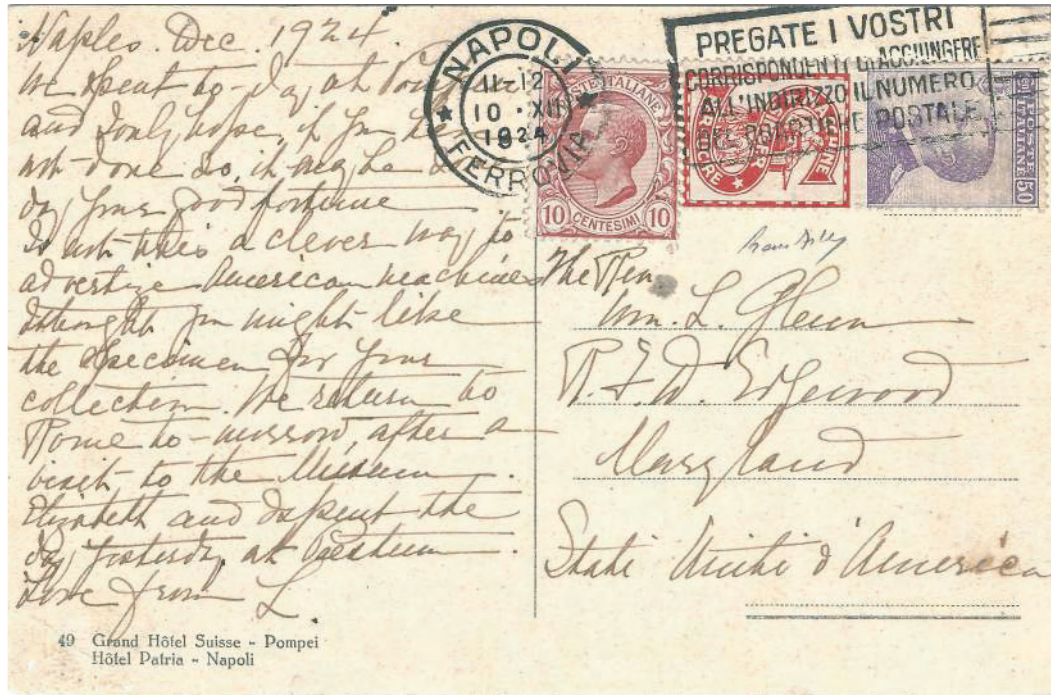 Naples. Dec. 1924.
We spent to-day at Pompeii
and I only hope, if you have
not done so, it may be some
day your good fortune
Is not this a clever way to
advertize American machines
I thought you might like
the specimen for your
collection. We return to
Rome to-morrow, after a
visit to the Museum.
Elizabeth and I spent the
day yesterday at Paestum.
Love from L.
49 Grand Hôtel Suisse - Pompei
Hôtel Patria - Napoli
NAPOLI
11-12
10 · XII
1924
FERROVIA
PREGATE I VOSTRI
CORRISPONDENTI D'AGGIUNGERE
ALL'INDIRIZZO IL NUMERO
POSTALE
POSTE ITALIANE
10 CENTESIMI 10
SINGER
MACCHINE
CUCIRE
POSTE
ITALIANE
50
The Rev.
Wm. L. Glenn
R.F.D. Edgewood
Maryland
Stati Uniti d'America